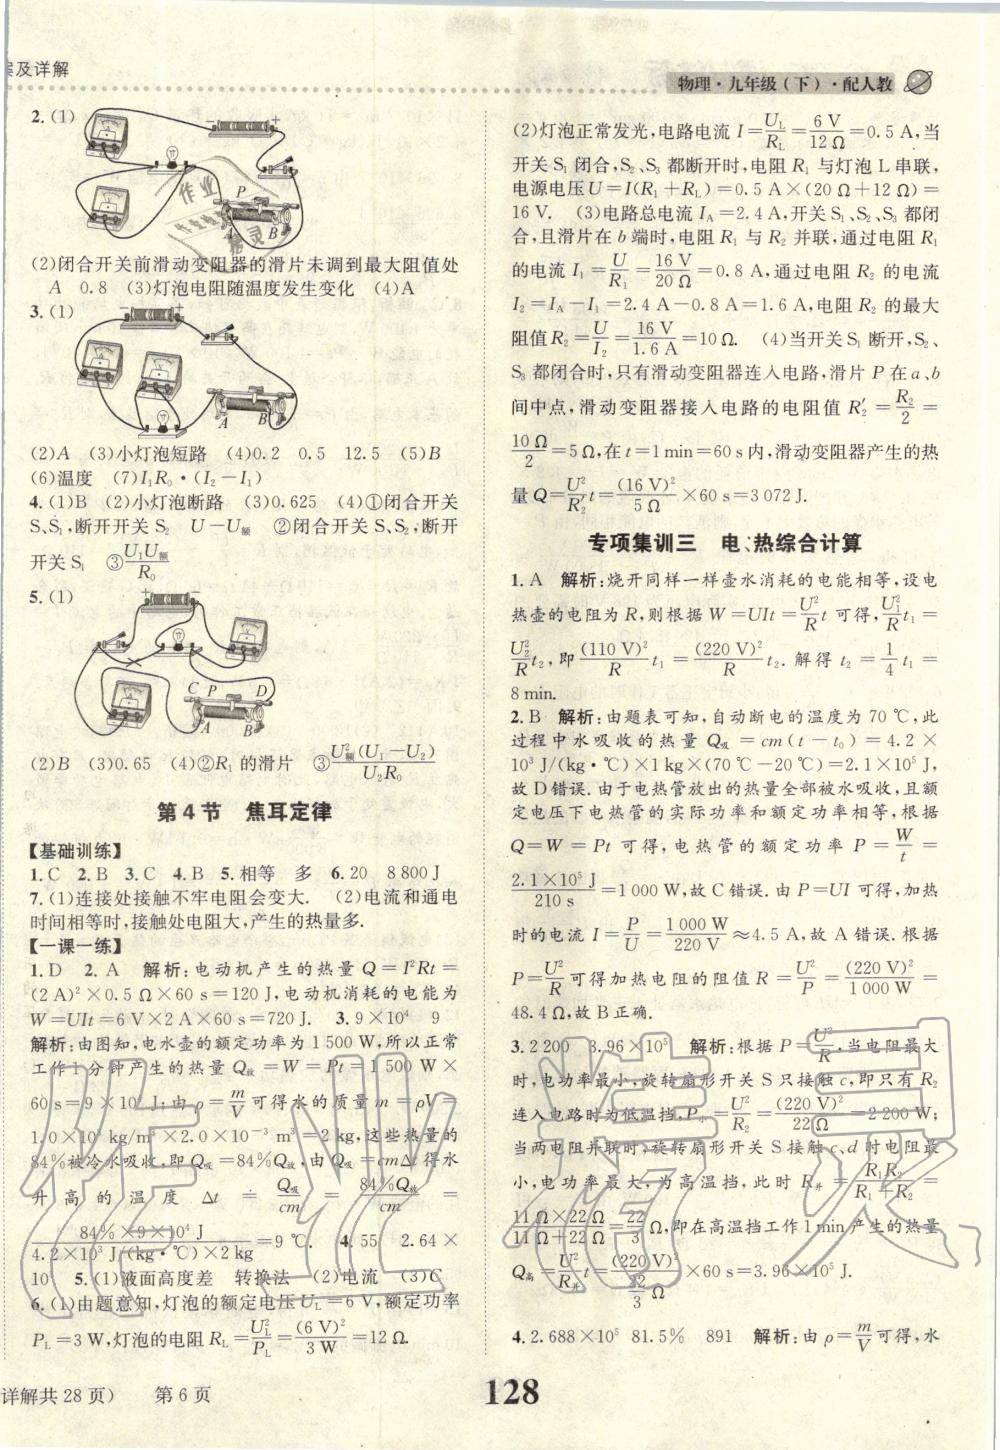 案及详解
物理·九年级(下)·配人教
2.(1)
(2)闭合开关前滑动变阻器的滑片未调到最大阻值处
A 0.8 (3)灯泡电阻随温度发生变化 (4)A
3.(1)
(2)A (3)小灯泡短路 (4)0.2 0.5 12.5 (5)B
(6)温度 (7)I₁R₀·(I₂-I₁)
4.(1)B (2)小灯泡断路 (3)0.625 (4)①闭合开关
S、S₁,断开开关S₂ U-U额 ②闭合开关S、S₂,断开
开关S₁ ③U₁U额/R₀
5.(1)
(2)B (3)0.65 (4)②R₁的滑片 ③U额²(U₁-U₂)/U₂R₀
第4节 焦耳定律
【基础训练】
1.C 2.B 3.C 4.B 5.相等 多 6.20 8 800 J
7.(1)连接处接触不牢电阻会变大. (2)电流和通电
时间相等时,接触处电阻大,产生的热量多.
【一课一练】
1.D 2.A 解析:电动机产生的热量Q=I²Rt=
(2 A)²×0.5 Ω×60 s=120 J,电动机消耗的电能为
W=UIt=6 V×2 A×60 s=720 J. 3.9×10⁴ 9
解析:由图知,电水壶的额定功率为1 500 W,所以正常
工作1分钟产生的热量Q放=W=Pt=1 500 W×
60 s=9×10⁴ J;由ρ=m/V可得水的质量m=ρV=
1.0×10³ kg/m³×2.0×10⁻³ m³=2 kg,这些热量的
84%被冷水吸收,即Q吸=84%Q放,由Q吸=cmΔt得水
升高的温度Δt=Q吸/cm=84%Q放/cm=
84%×9×10⁴ J/4.2×10³ J/(kg·℃)×2 kg=9 ℃. 4.55 2.64×
10⁴ 5.(1)液面高度差 转换法 (2)电流 (3)C
6.(1)由题意知,灯泡的额定电压U_L=6 V,额定功率
P_L=3 W,灯泡的电阻R_L=U_L²/P_L=(6 V)²/3 W=12 Ω.
(2)灯泡正常发光,电路电流I=U_L/R_L=6 V/12 Ω=0.5 A,当
开关S₁闭合,S₂、S₃都断开时,电阻R₁与灯泡L串联,
电源电压U=I(R₁+R_L)=0.5 A×(20 Ω+12 Ω)=
16 V. (3)电路总电流I_A=2.4 A,开关S₁、S₂、S₃都闭
合,且滑片在b端时,电阻R₁与R₂并联,通过电阻R₁
的电流I₁=U/R₁=16 V/20 Ω=0.8 A,通过电阻R₂的电流
I₂=I_A-I₁=2.4 A-0.8 A=1.6 A,电阻R₂的最大
阻值R₂=U/I₂=16 V/1.6 A=10 Ω. (4)当开关S₁断开,S₂、
S₃都闭合时,只有滑动变阻器连入电路,滑片P在a、b
间中点,滑动变阻器接入电路的电阻值R₂′=R₂/2=
10 Ω/2=5 Ω,在t=1 min=60 s内,滑动变阻器产生的热
量Q=U²/R₂′t=(16 V)²/5 Ω×60 s=3 072 J.
专项集训三 电、热综合计算
1.A 解析:烧开同样一样壶水消耗的电能相等,设电
热壶的电阻为R,则根据W=UIt=U²/R t可得,U₁²/R t₁=
U₂²/R t₂,即(110 V)²/R t₁=(220 V)²/R t₂. 解得t₂=1/4 t₁=
8 min.
2.B 解析:由题表可知,自动断电的温度为70 ℃,此
过程中水吸收的热量Q吸=cm(t-t₀)=4.2×
10³ J/(kg·℃)×1 kg×(70 ℃-20 ℃)=2.1×10⁵ J,
故D错误.由于电热管放出的热量全部被水吸收,且额
定电压下电热管的实际功率和额定功率相等,根据
Q=W=Pt可得,电热管的额定功率P=W/t=
2.1×10⁵ J/210 s=1 000 W,故C错误.由P=UI可得,加热
时的电流I=P/U=1 000 W/220 V≈4.5 A,故A错误.根据
P=U²/R可得加热电阻的阻值R=U²/P=(220 V)²/1 000 W=
48.4 Ω,故B正确.
3.2 200 3.96×10⁵ 解析:根据P=U²/R,当电阻最大
时,电功率最小,旋转扇形开关S只接触c,即只有R₂
连入电路时为低温挡,P低=U²/R₂=(220 V)²/22 Ω=2 200 W;
当两电阻并联时,旋转扇形开关S接触c、d时电阻最
小,电功率最大,为高温挡,此时R并=R₁R₂/R₁+R₂=
11 Ω×22 Ω/11 Ω+22 Ω=22/3 Ω,即在高温挡工作1 min产生的热量
Q高=U²/R并 t=(220 V)²/(22/3 Ω)×60 s=3.96×10⁵ J.
4.2.688×10⁵ 81.5% 891 解析:由ρ=m/V可得,水
详解共28页) 第6页
128